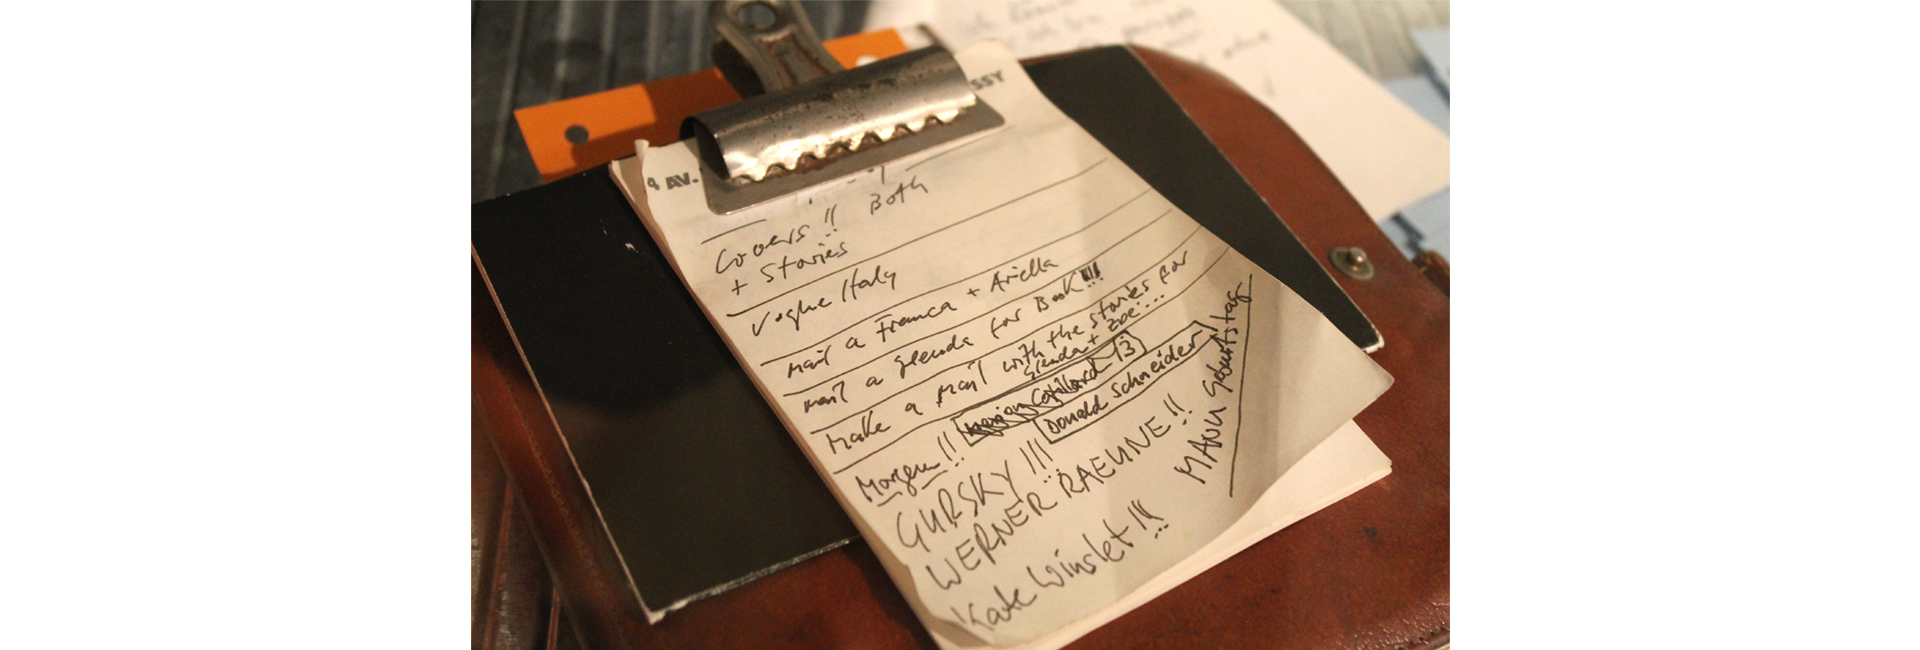 SSY
9 AV.
Covers !! Both
+ Stories
Vogue Italy
mail a Franca + Ariella
mail a glenda for Book !!!
Make a mail with the stories for
Glenda + Zoe...
Morgen !! Marion Cotillard 13
Donald Schneider
GURSKY !!!
WERNER RAEUNE !!
Kate Winslet !!!
MANU Geburtstag